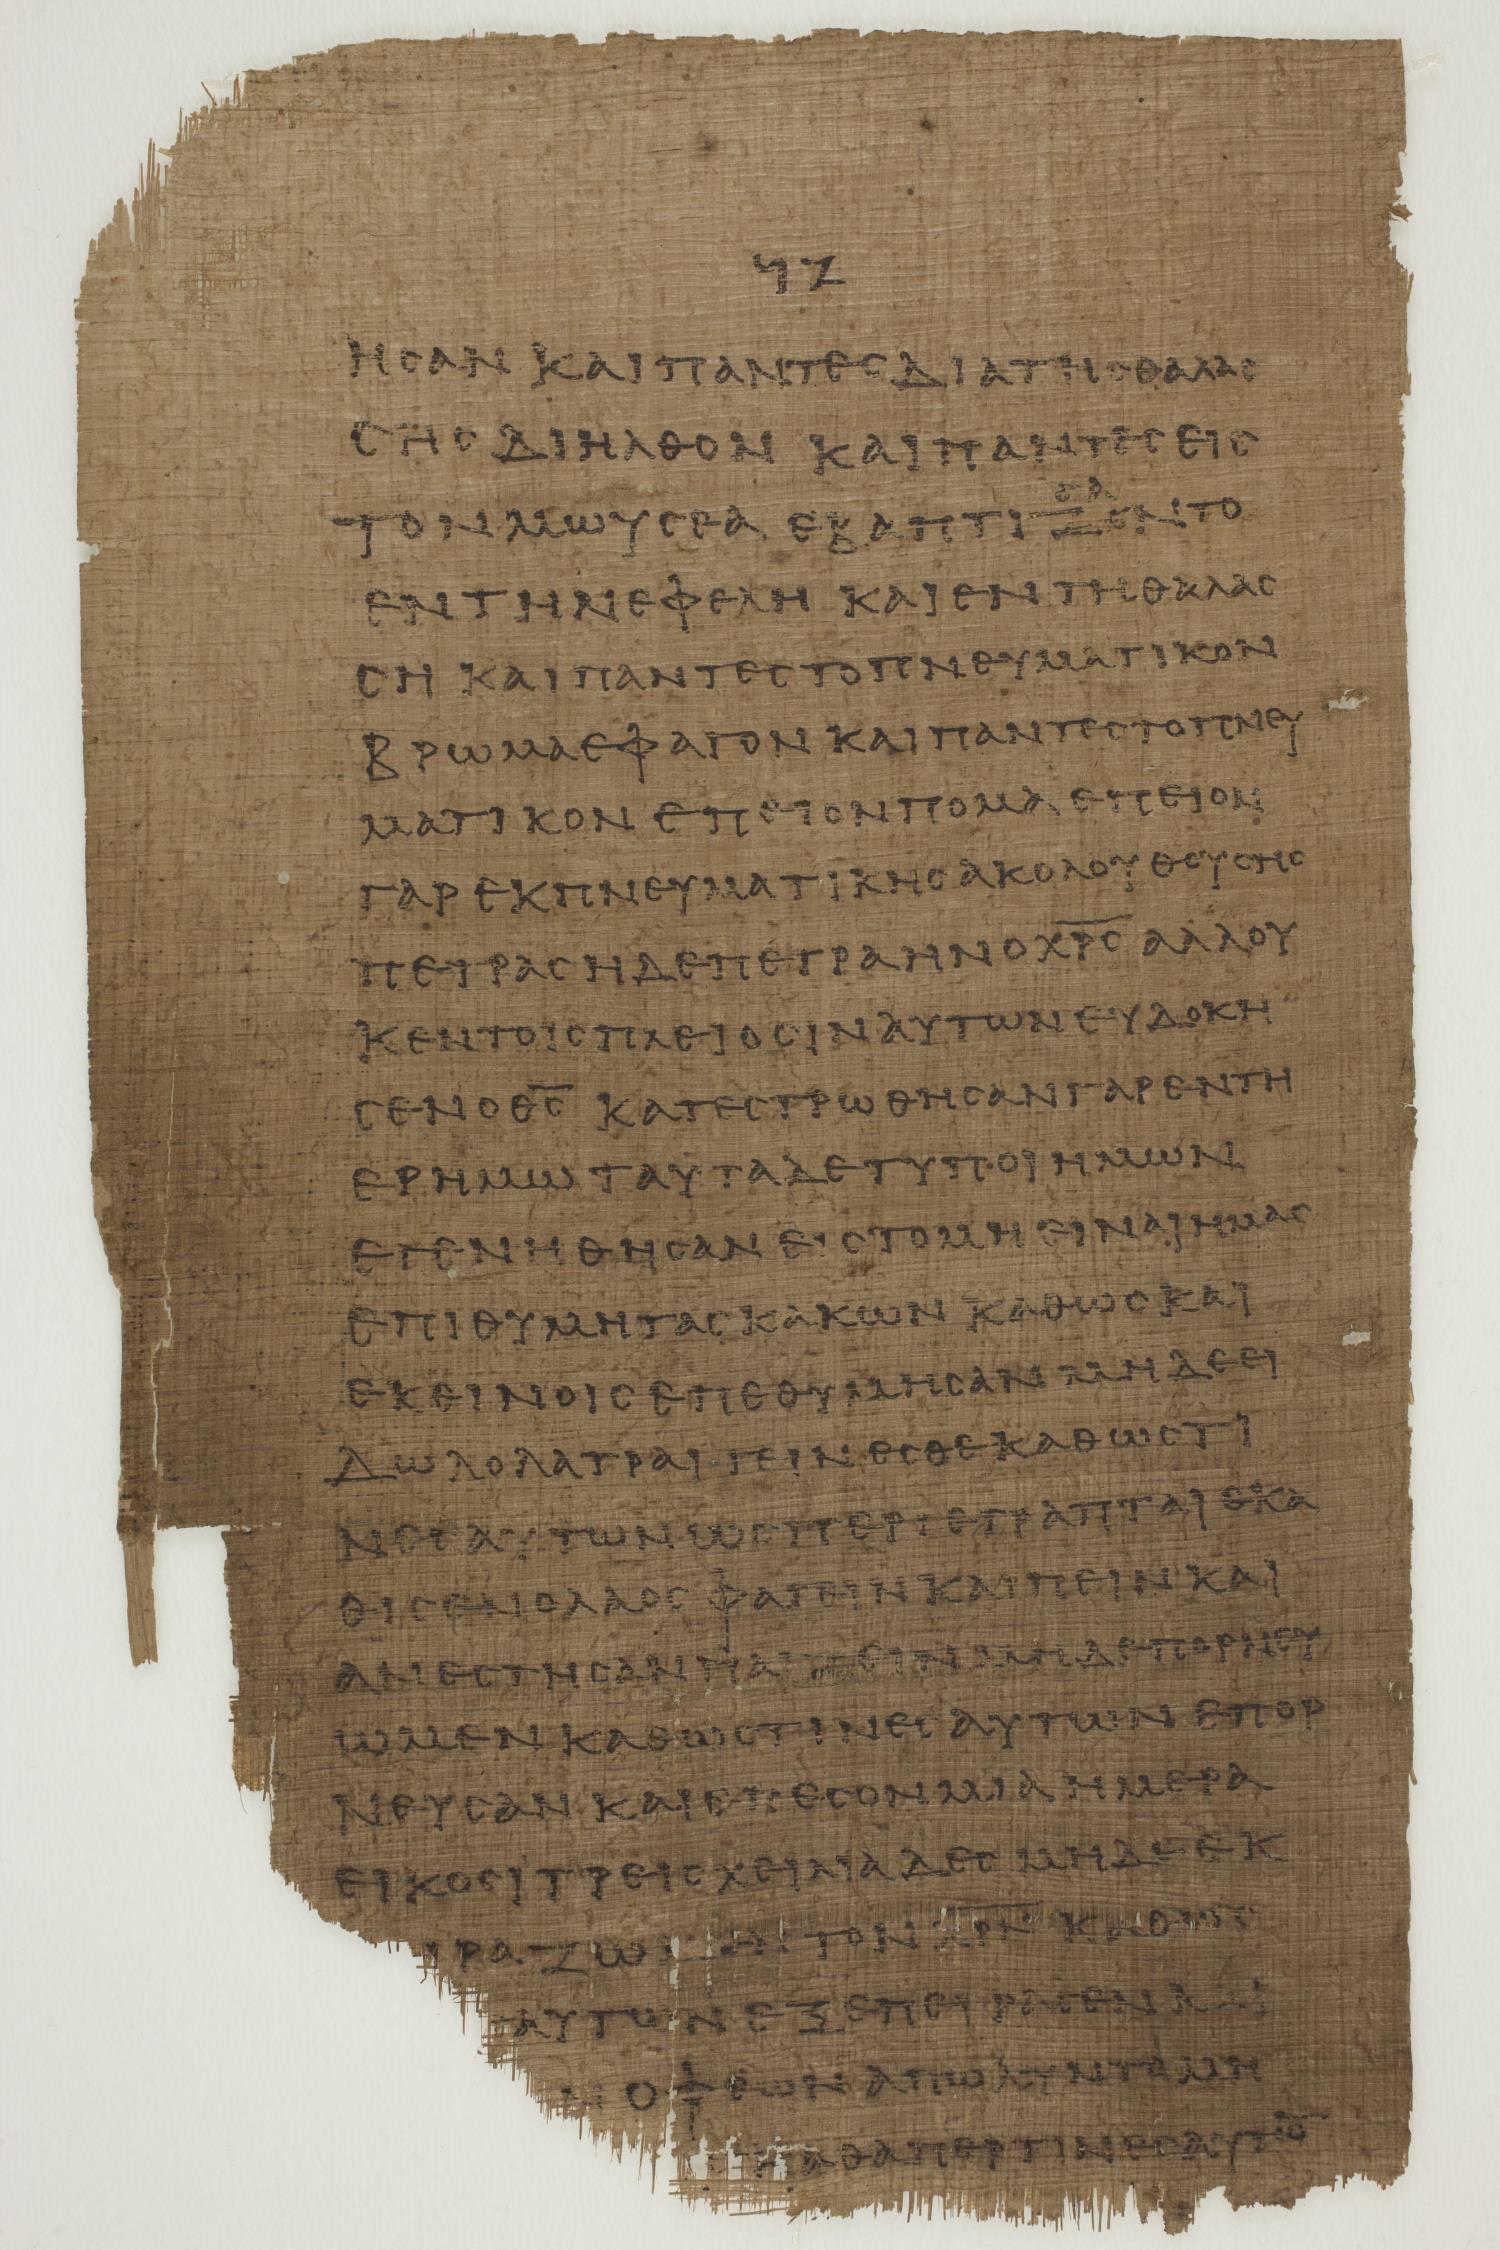 ϟζ
ΗϹΑΝ ΚΑΙ ΠΑΝΤΕϹ ΔΙΑ ΤΗϹ ΘΑΛΑϹ
ϹΗϹ ΔΙΗΛΘΟΝ ΚΑΙ ΠΑΝΤΕϹ ΕΙϹ
ΤΟΝ ΜΩΥϹΕΑ ΕΒΑΠΤΙΖΟΝΤΟ
ΕΝ ΤΗ ΝΕΦΕΛΗ ΚΑΙ ΕΝ ΤΗ ΘΑΛΑϹ
ϹΗ ΚΑΙ ΠΑΝΤΕϹ ΤΟ ΠΝΕΥΜΑΤΙΚΟΝ
ΒΡΩΜΑ ΕΦΑΓΟΝ ΚΑΙ ΠΑΝΤΕϹ ΤΟ ΠΝΕΥ
ΜΑΤΙΚΟΝ ΕΠΕΙΟΝ ΠΟΜΑ ΕΠΕΙΟΝ
ΓΑΡ ΕΚ ΠΝΕΥΜΑΤΙΚΗϹ ΑΚΟΛΟΥΘΟΥϹΗϹ
ΠΕΤΡΑϹ Η ΔΕ ΠΕΤΡΑ ΗΝ Ο ΧΡ̅Ϲ̅ ΑΛΛ ΟΥ
Κ ΕΝ ΤΟΙϹ ΠΛΕΙΟϹΙΝ ΑΥΤΩΝ ΕΥΔΟΚΗ
ϹΕΝ Ο Θ̅Ϲ̅ ΚΑΤΕϹΤΡΩΘΗϹΑΝ ΓΑΡ ΕΝ ΤΗ
ΕΡΗΜΩ ΤΑΥΤΑ ΔΕ ΤΥΠΟΙ ΗΜΩΝ
ΕΓΕΝΗΘΗϹΑΝ ΕΙϹ ΤΟ ΜΗ ΕΙΝΑΙ ΗΜΑϹ
ΕΠΙΘΥΜΗΤΑϹ ΚΑΚΩΝ ΚΑΘΩϹ ΚΑΙ
ΕΚΕΙΝΟΙϹ ΕΠΕΘΥΜΗϹΑΝ ΜΗΔΕ ΕΙ
ΔΩΛΟΛΑΤΡΑΙ ΓΕΙΝΕϹΘΕ ΚΑΘΩϹ ΤΙ
ΝΕϹ ΑΥΤΩΝ ΩϹΠΕΡ ΓΕΓΡΑΠΤΑΙ ΕΚΑ
ΘΙϹΕΝ Ο ΛΑΟϹ ΦΑΓΕΙΝ ΚΑΙ ΠΕΙΝ ΚΑΙ
ΑΝΕϹΤΗϹΑΝ ΠΑΙΖΕΙΝ ΜΗΔΕ ΠΟΡΝΕΥ
ΩΜΕΝ ΚΑΘΩϹ ΤΙΝΕϹ ΑΥΤΩΝ ΕΠΟΡ
ΝΕΥϹΑΝ ΚΑΙ ΕΠΕϹΟΝ ΜΙΑ ΗΜΕΡΑ
ΕΙΚΟϹΙ ΤΡΕΙϹ ΧΕΙΛΙΑΔΕϹ ΜΗΔΕ ΕΚ
ΙΡΑΖΩΜΕΝ ΤΟΝ ΧΡ̅Ν̅ ΚΑΘΩϹ
ΑΥΤΩΝ ΕΞΕΠΕΙΡΑϹΕΝ ΚΑΙ
ΟΦΕΩΝ ΑΠΩΛΥΝΤΟ ΜΗ
ΚΑΘΑΠΕΡ ΤΙΝΕϹ ΑΥΤΩ̅